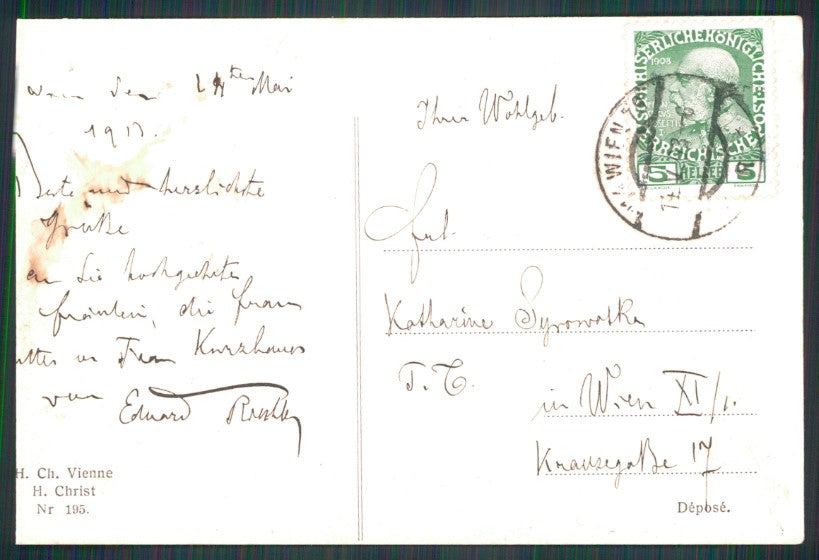 Wien den 14ten Mai
1913.
Beste und herzlichste
Grüße
an Sie hochgeehrtes
Fräulein, die Frau
Mutter u Frau Kurzhaus
von
Eduard
H. Ch. Vienne
H. Christ
Nr 195.
KAISERLICHE KÖNIGLICHE
1908
ÖSTERREICHISCHE
5 HELLER 5
WIEN
Ihrer Wohlgeb.
Frl.
Katharine Syrowatka
T. C.
in Wien XI/1.
Krausegaße 17
Déposé.